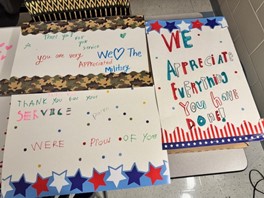 Thank you for your
service
you are very
Appreciated
We The
Military
THANK YOU FOR YOUR
SERVICE
WERE PROW OF YOU
WE
APPRECIATE
EVERYTHING
YOU HAVE
DONE!